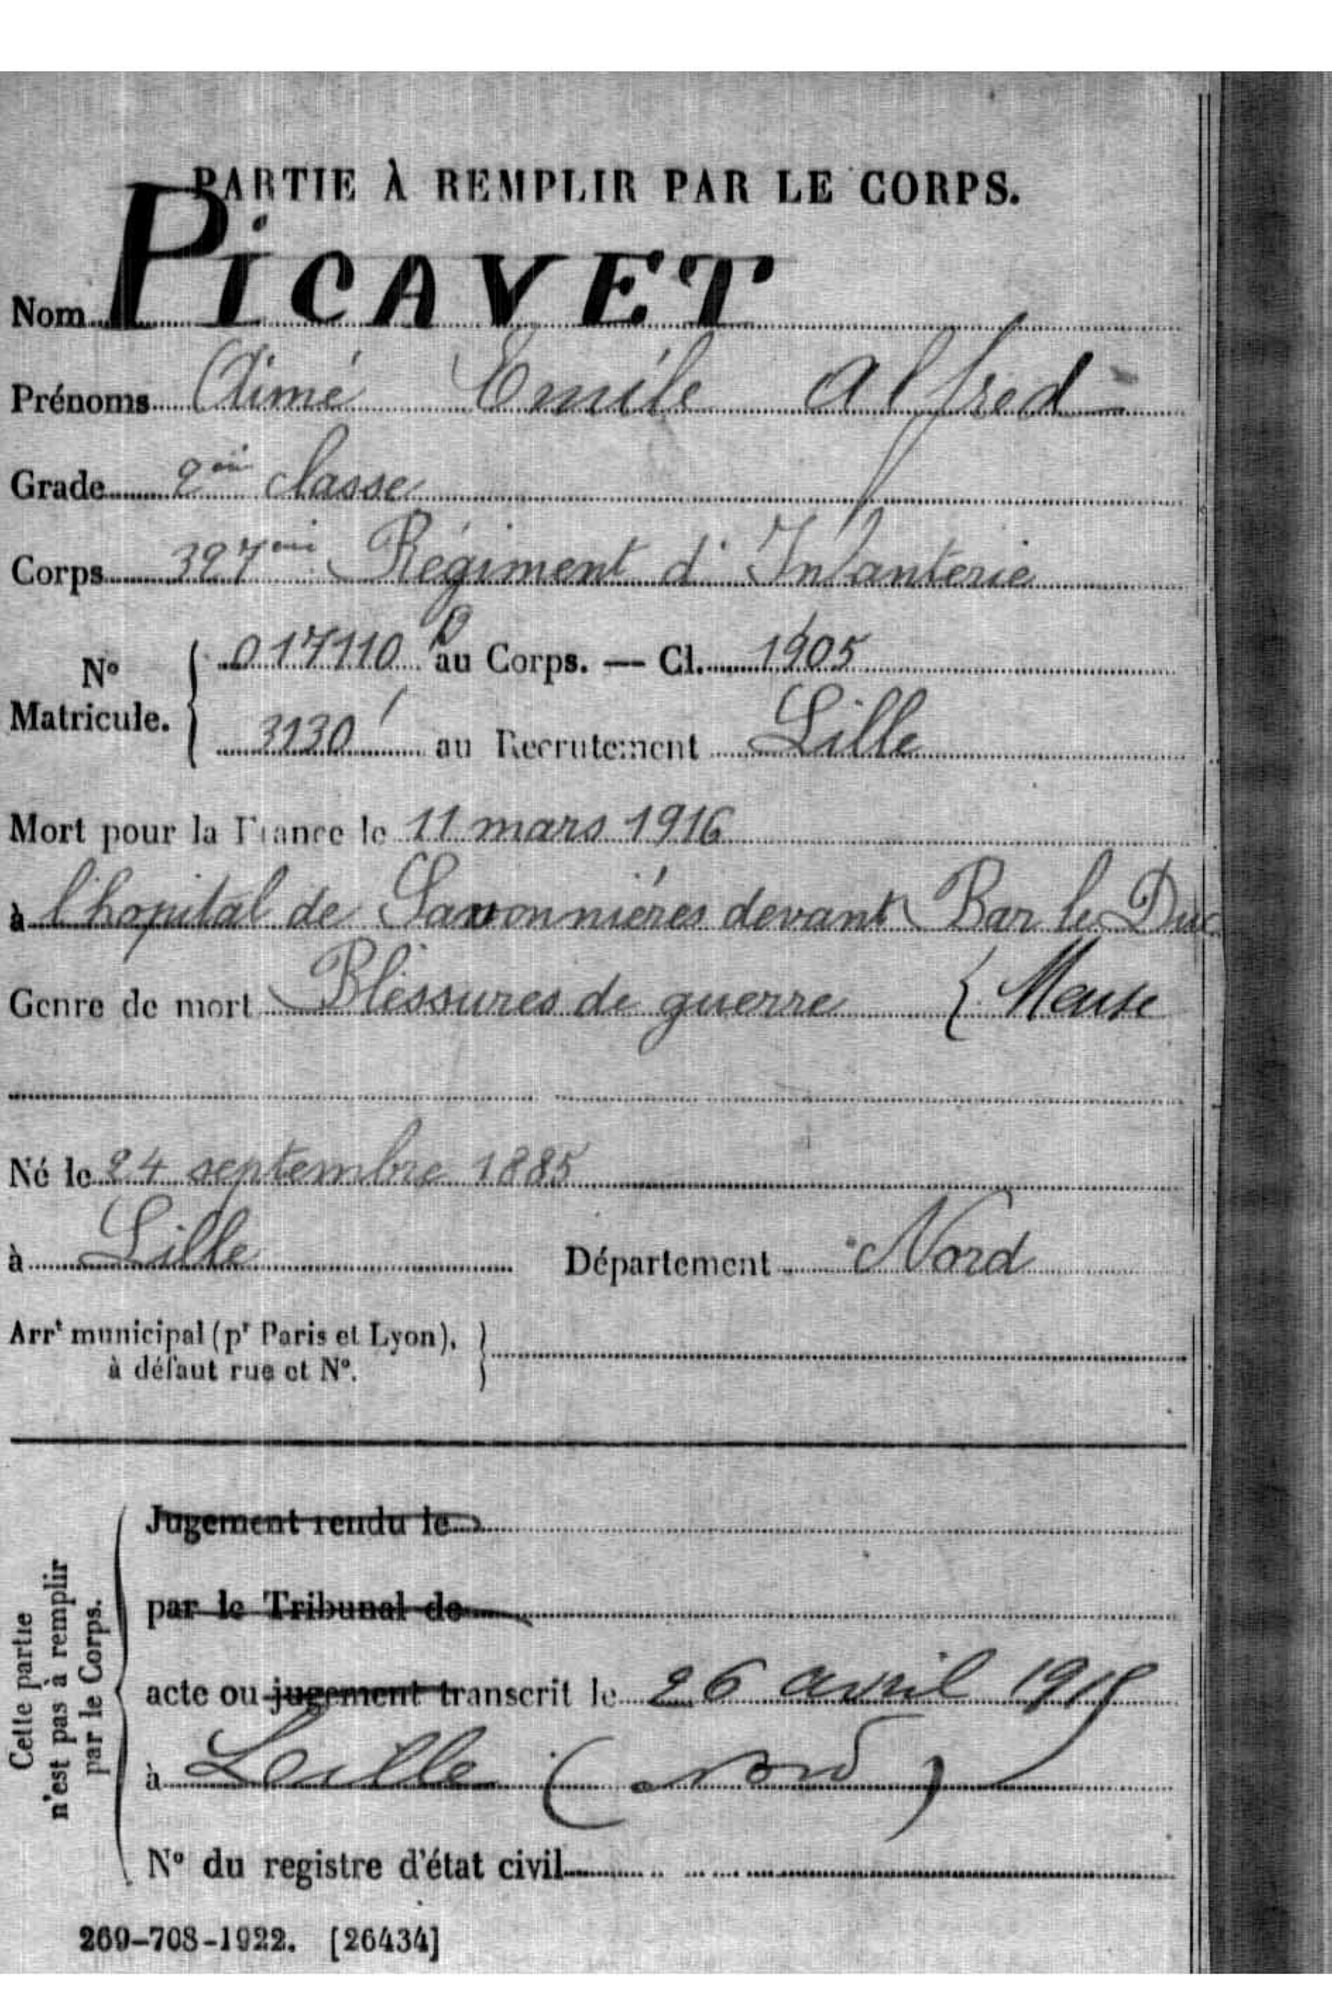 PARTIE À REMPLIR PAR LE CORPS.
Nom PICAVET
Prénoms Aimé Emile Alfred
Grade 2ème classe
Corps 327ème Régiment d'Infanterie
N° Matricule. 017110 au Corps. — Cl. 1905
3130 au Recrutement Lille
Mort pour la France le 11 mars 1916
à l'hopital de Savonnières devant Bar le Duc
Genre de mort Bléssures de guerre { Meuse
Né le 24 septembre 1885
à Lille Département Nord
Arrt municipal (pr Paris et Lyon),
à défaut rue et N°.
Cette partie
n'est pas à remplir
par le Corps.
Jugement rendu le
par le Tribunal de
acte ou jugement transcrit le 26 avril
à Lille (Nord)
N° du registre d'état civil
269-708-1922. [26434]